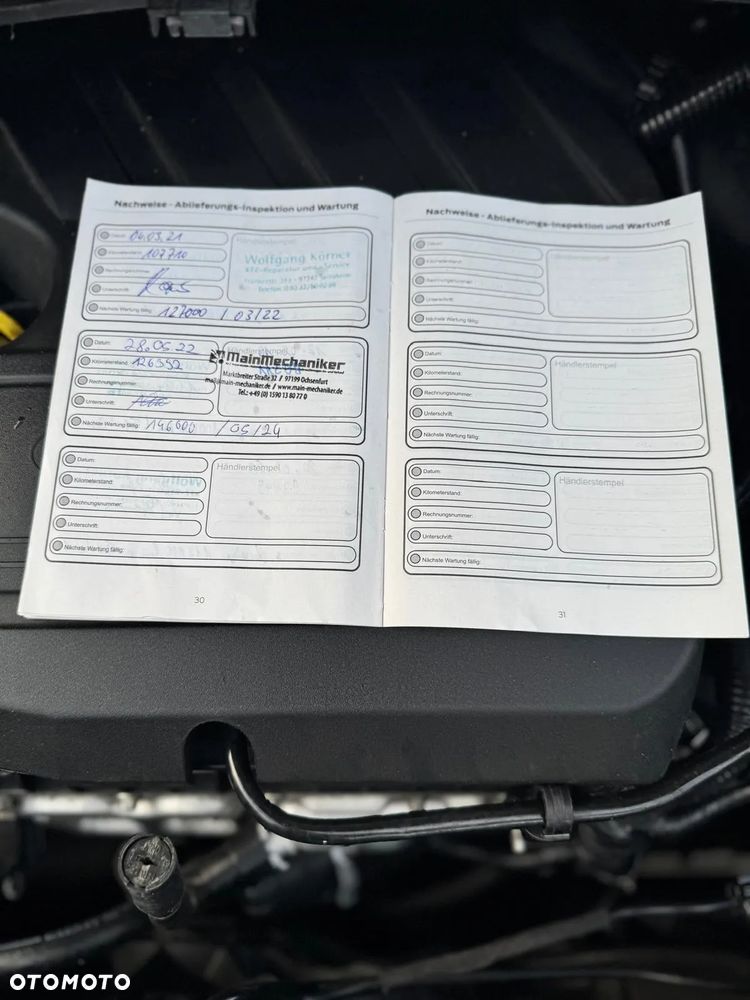 Nachweise - Ablieferungs-Inspektion und Wartung
Datum: 04.03.21
Händlerstempel
Kilometerstand: 107710
Wolfgang Körner
KFZ-Reparatur und -Service
Rechnungsnummer:
Unterschrift:
Nächste Wartung fällig: 127000 / 03/22
Datum: 28.05.22
Händlerstempel
Kilometerstand: 126552
MainMechaniker
Rechnungsnummer:
Marktbreiter Straße 32 / 97199 Ochsenfurt
mail@main-mechaniker.de / www.main-mechaniker.de
Tel.: +49 (0) 1590 13 80 77 0
Unterschrift:
Nächste Wartung fällig: 146000 / 05/24
Datum:
Händlerstempel
Kilometerstand:
Rechnungsnummer:
Unterschrift:
Nächste Wartung fällig:
30
Nachweise - Ablieferungs-Inspektion und Wartung
Datum:
Händlerstempel
Kilometerstand:
Rechnungsnummer:
Unterschrift:
Nächste Wartung fällig:
Datum:
Händlerstempel
Kilometerstand:
Rechnungsnummer:
Unterschrift:
Nächste Wartung fällig:
Datum:
Händlerstempel
Kilometerstand:
Rechnungsnummer:
Unterschrift:
Nächste Wartung fällig:
31
OTOMOTO